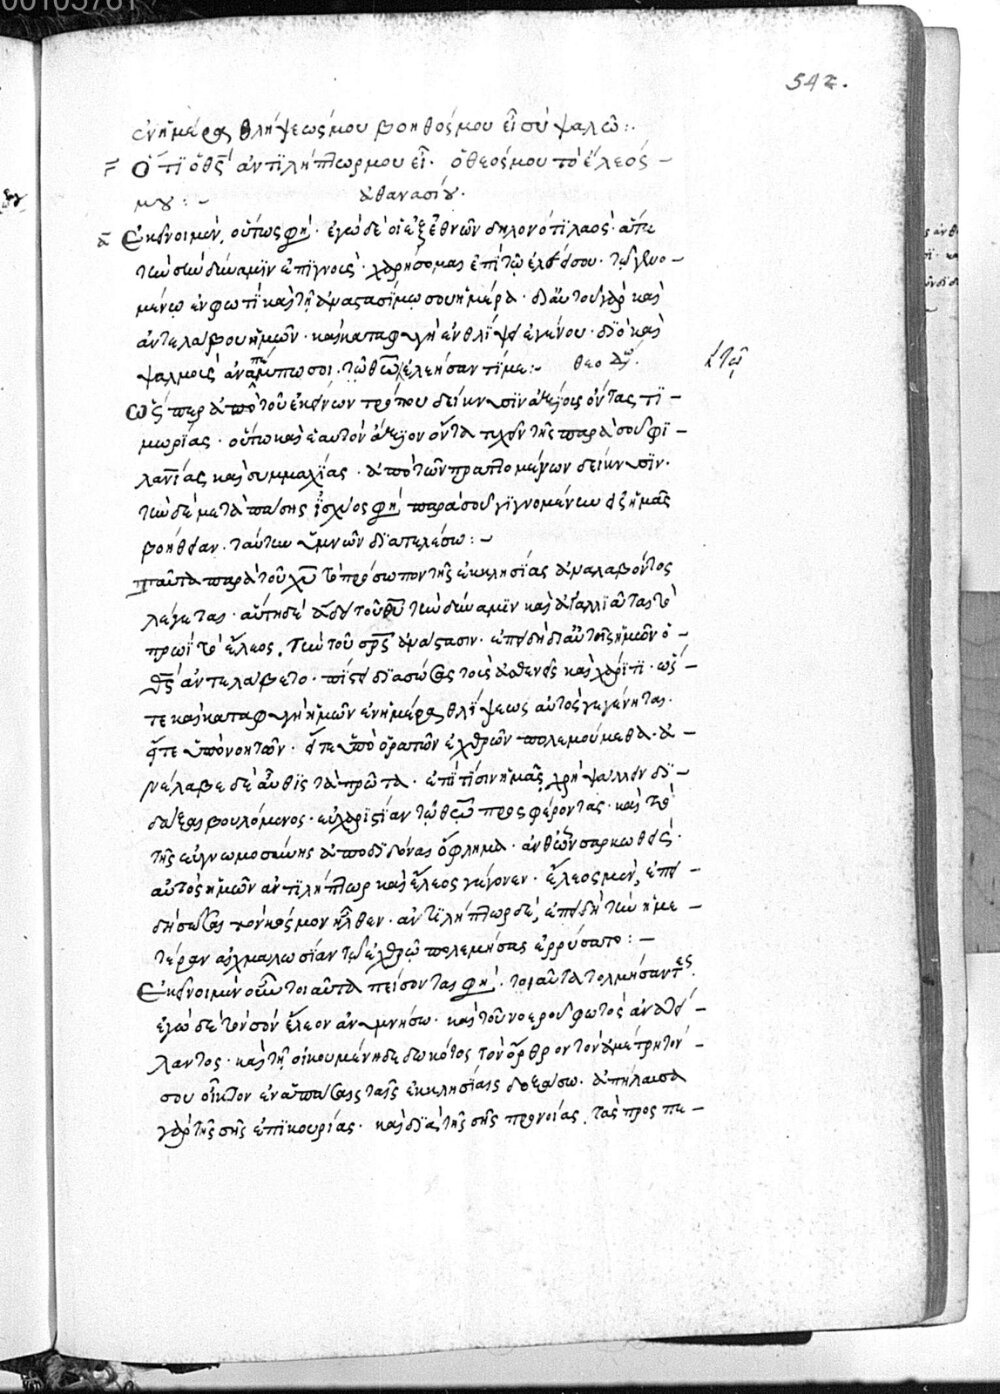 00105761
542.
ἐν ἡμέρᾳ θλίψεώς μου βοηθός μου εἶ σὺ ψαλῶ :.
ὅτι ὁ θς ἀντιλήπτωρ μου εἶ· ὁ θεός μου τὸ ἔλεός –
μου : – ἀθανασίου.
Ἐκεῖνοι μὲν, οὕτως φη· ἐγὼ δὲ ὁ ἐξ ἐθνῶν δηλονότι λαός·
τὴν σὴν δύναμιν ἐπιγνοὺς· χαρήσομαι ἐπὶ τῷ ἐλέει σου· τῷ γενο –
μένῳ ἐν φωτὶ καὶ τῇ ἀναστασίμῳ σου ἡμέρᾳ· διὰ τοῦ γὰρ καὶ
ἀντελάβου ἡμῶν· καὶ καταφυγὴ ἐν θλίψει ἐγένου· διὸ καὶ
ψαλμοὺς ἀναπέμπω σοι· τῷ θεῷ ἐλεήσαντί με : – θεοδώρ.
ὥσπερ ἀπὸ τοῦ ἐκείνων τρόπου δείκνυσιν ἀξίους ὄντας τι –
μωρίας· οὕτω καὶ ἑαυτὸν ἄξιον ὄντα τυχεῖν τῆς παρὰ σοῦ φι –
λανίας καὶ συμμαχίας· ἀπὸ τῶν πραττομένων δείκνυσιν·
τὴν δὲ μετὰ πάσης ἰσχύος φη, παρὰ σοῦ γιγνομένην εἰς ἡμᾶς
βοήθειαν· ταύτην ὑμνῶν διατελέσω : –
ταῦτα παρὰ τοῦ χυ τὸ πρόσωπον τῆς ἐκκλησίας ἀναλαβόντος
λέγεται· αὕτη δὲ ᾄδει τοῦ θυ τὴν δύναμιν καὶ ἀγαλλιᾶται τὸ
πρωὶ τὸ ἔλεος, τὴν τοῦ σρς ἀνάστασιν· ἐπειδὴ δι' αὐτῆς ἡμῶν ὁ –
θς ἀντελάβετο· πίστει διασώσας τοὺς ἀσθενεῖς καὶ χάριτι· ὥσ –
τε καὶ καταφυγὴ ἡμῶν ἐν ἡμέρᾳ θλίψεως αὐτὸς γεγένηται·
εἴτε ὑπὸ νοητῶν· εἴτε ὑπὸ ὁρατῶν ἐχθρῶν πολεμούμεθα· ἀ –
νέλαβε δὲ αὖθις τὰ πρῶτα· ἐπὶ τίσιν ἡμᾶς χρὴ ψάλλειν δι –
δάξαι βουλόμενος· εὐχαριστίαν τῷ θεῷ προσφέροντας· καὶ τὸ
τῆς εὐγνωμοσύνης ἀποδιδόναι ὄφλημα· ἀνθ' ὧν σαρκωθεὶς·
αὐτὸς ἡμῶν ἀντιλήπτωρ καὶ ἔλεος γέγονεν· ἔλεος μὲν, ἐπει –
δὴ σῶσαι τὸν κόσμον ἦλθεν· ἀντιλήπτωρ δὲ, ἐπειδὴ τὴν ἡμε –
τέραν αἰχμαλωσίαν τῷ ἐχθρῷ πολεμήσας ἐρρύσατο : –
Ἐκεῖνοι μὲν οὖν τοιαῦτα πείσονται φη· τοιαῦτα τολμήσαντες·
ἐγὼ δὲ τὸν σὸν ἔλεον ἀνυμνήσω· καὶ τοῦ νοεροῦ φωτὸς ἀνατεί –
λαντος· καὶ τῇ οἰκουμένῃ δεδωκότος τὸν ὄρθρον τὸν ἀμέτρητόν –
σου οἶκτον ἐν ἁπάσαις ταῖς ἐκκλησίαις δοξάσω· ἀπήλαυσα
γὰρ τῆς σῆς ἐπικουρίας· καὶ διὰ τῆς σῆς προνοίας, τὰς προσπε –